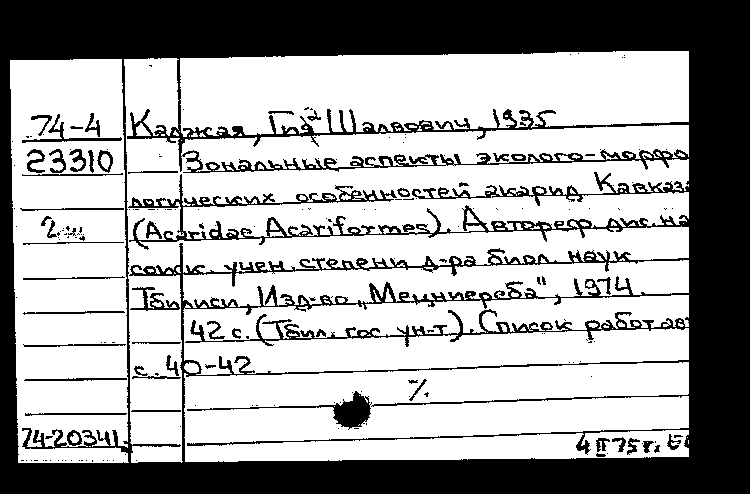 74-4 Каджая, Гиа Шалвович, 1935
23310 Зональные аспекты эколого-морфо
логических особенностей акарид Кавказа
(Acaridae, Acariformes). Автореф. дис. на
соиск. учен. степени д-ра биол. наук.
Тбилиси, Изд-во „Мецниереба", 1974.
42 с. (Тбил. гос. ун-т). Список работ авт
с. 40-42.
%.
74-20341. 4 II 75 г.